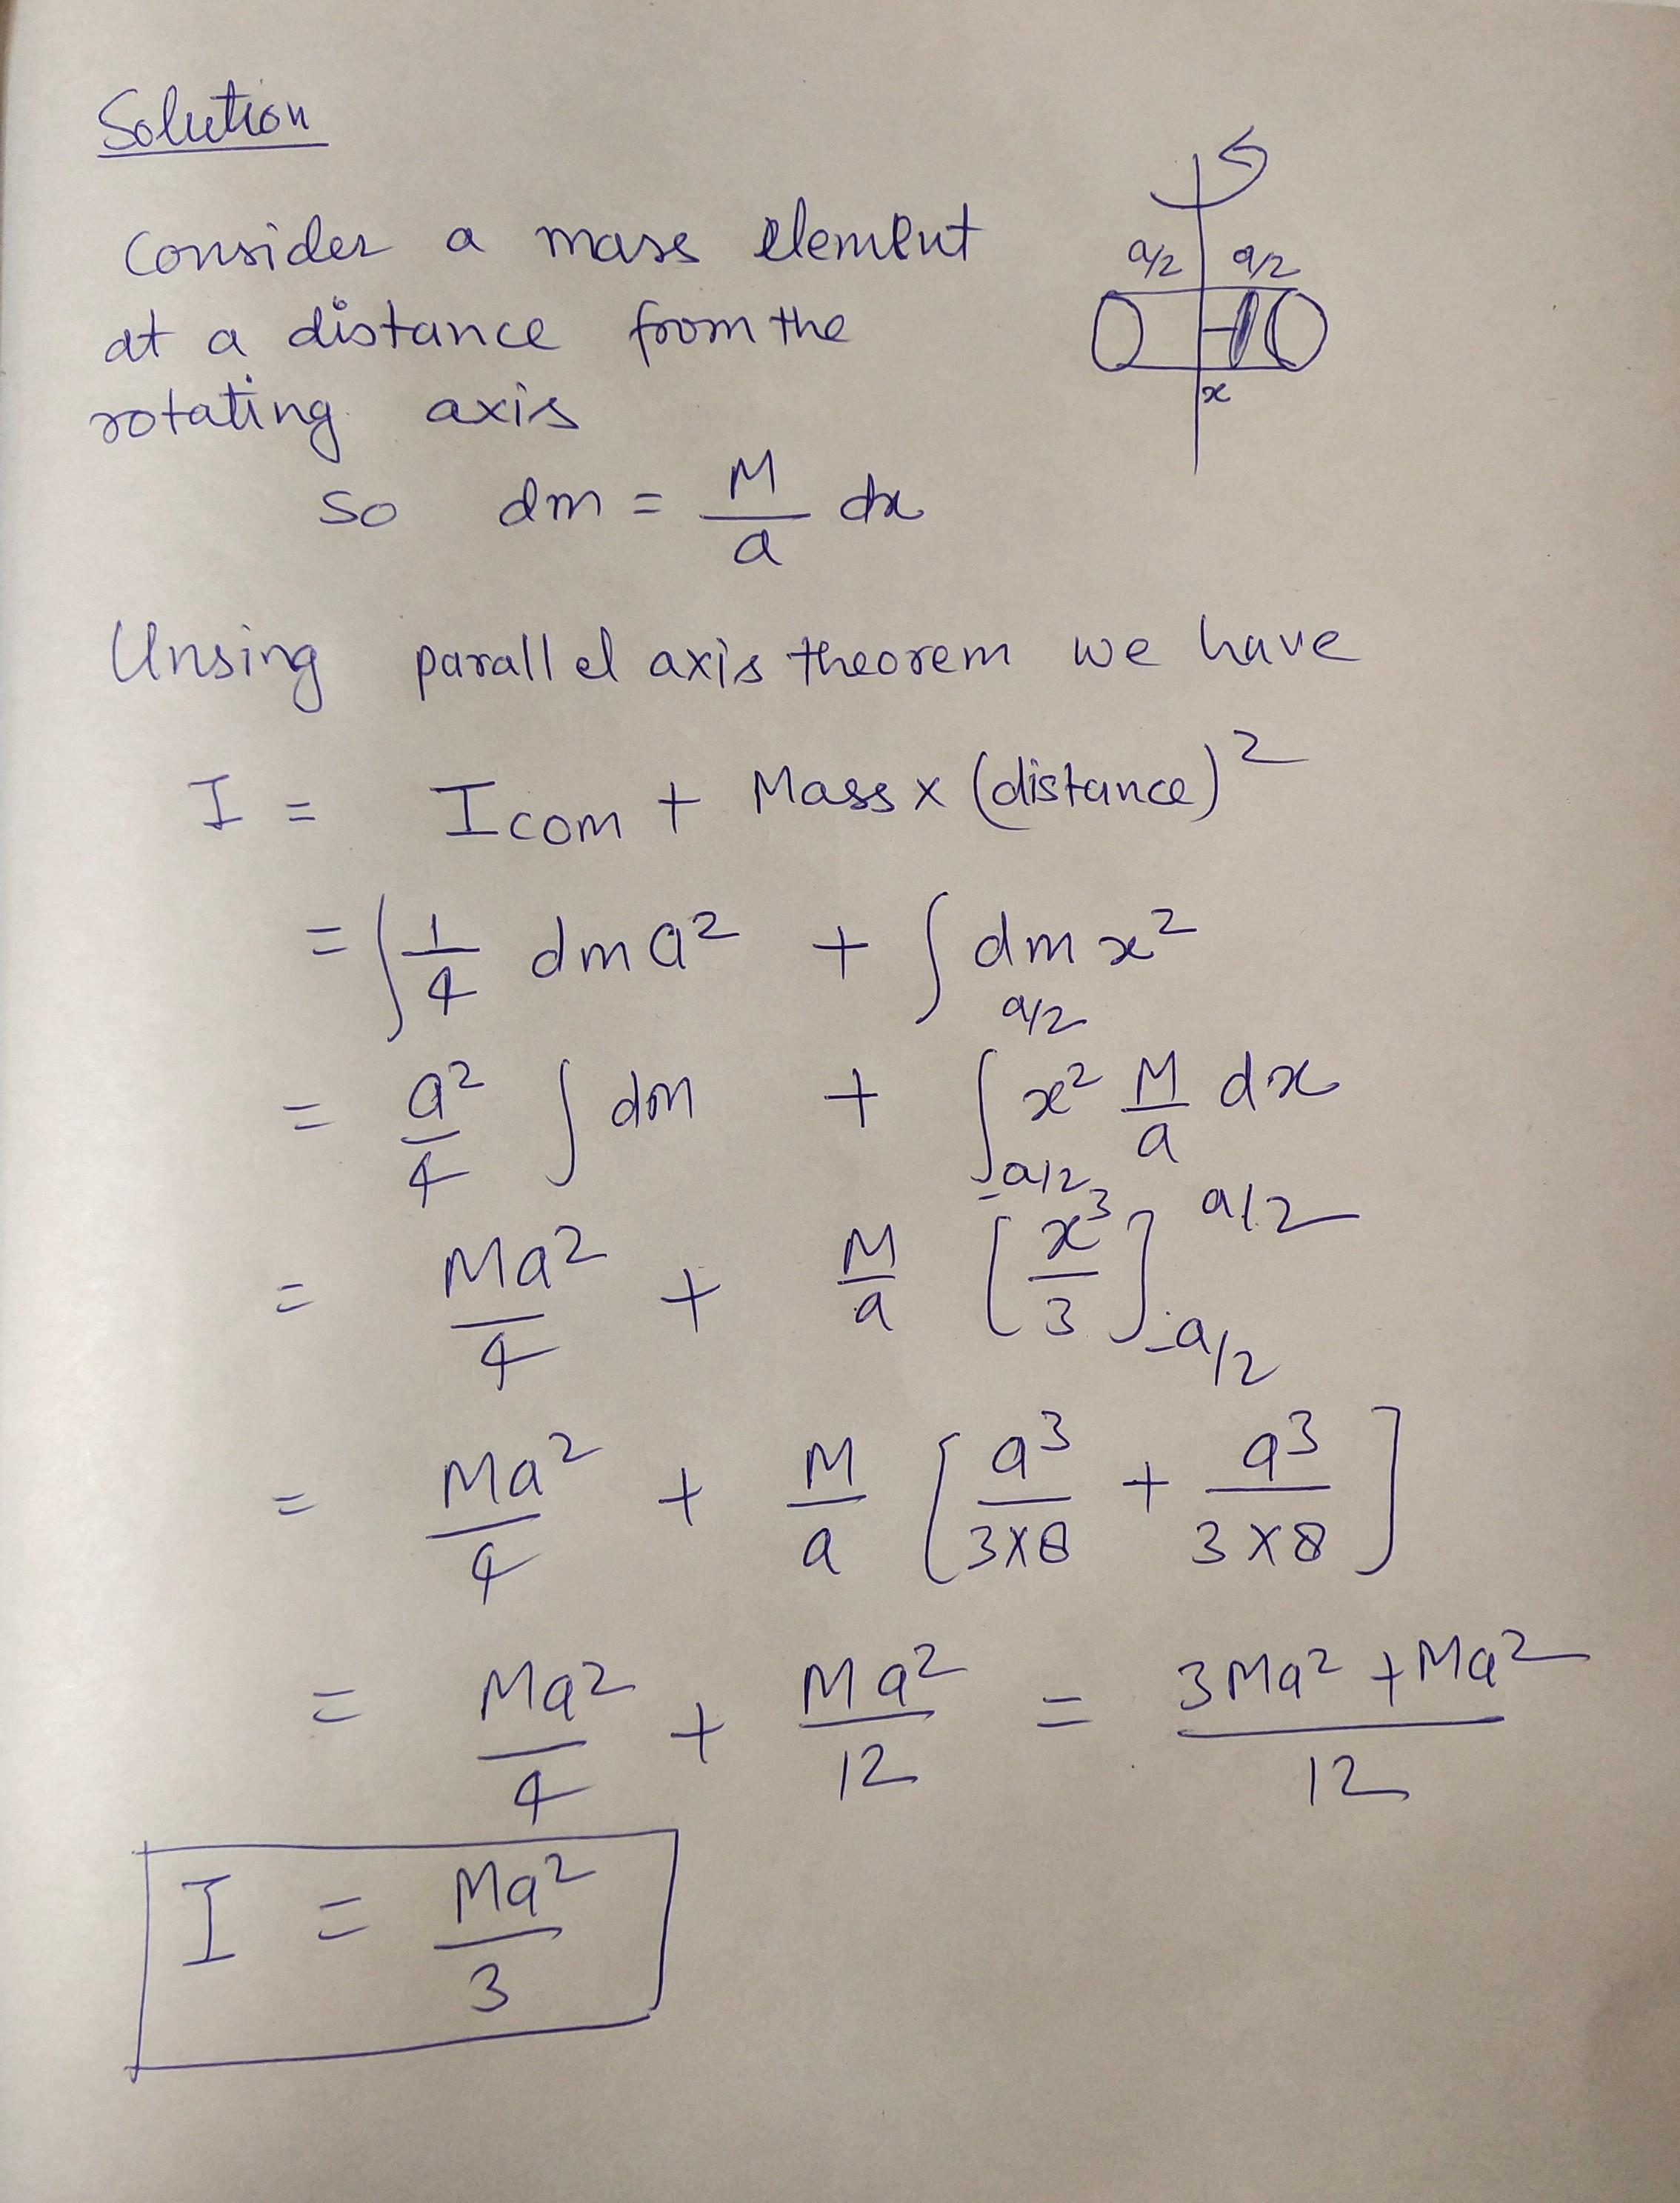 Solution
Consider a mass element
at a distance from the
rotating axis
So dm = M/a dx
a/2 a/2
x
Unsing parallel axis theorem we have
I = Icom + Mass x (distance)²
= ∫ 1/4 dm a² + ∫ dm x²
= a²/4 ∫ dm + ∫_{-a/2}^{a/2} x² M/a dx
= Ma²/4 + M/a [x³/3]_{-a/2}^{a/2}
= Ma²/4 + M/a [a³/3x8 + a³/3x8]
= Ma²/4 + Ma²/12 = 3Ma² + Ma²/12
I = Ma²/3